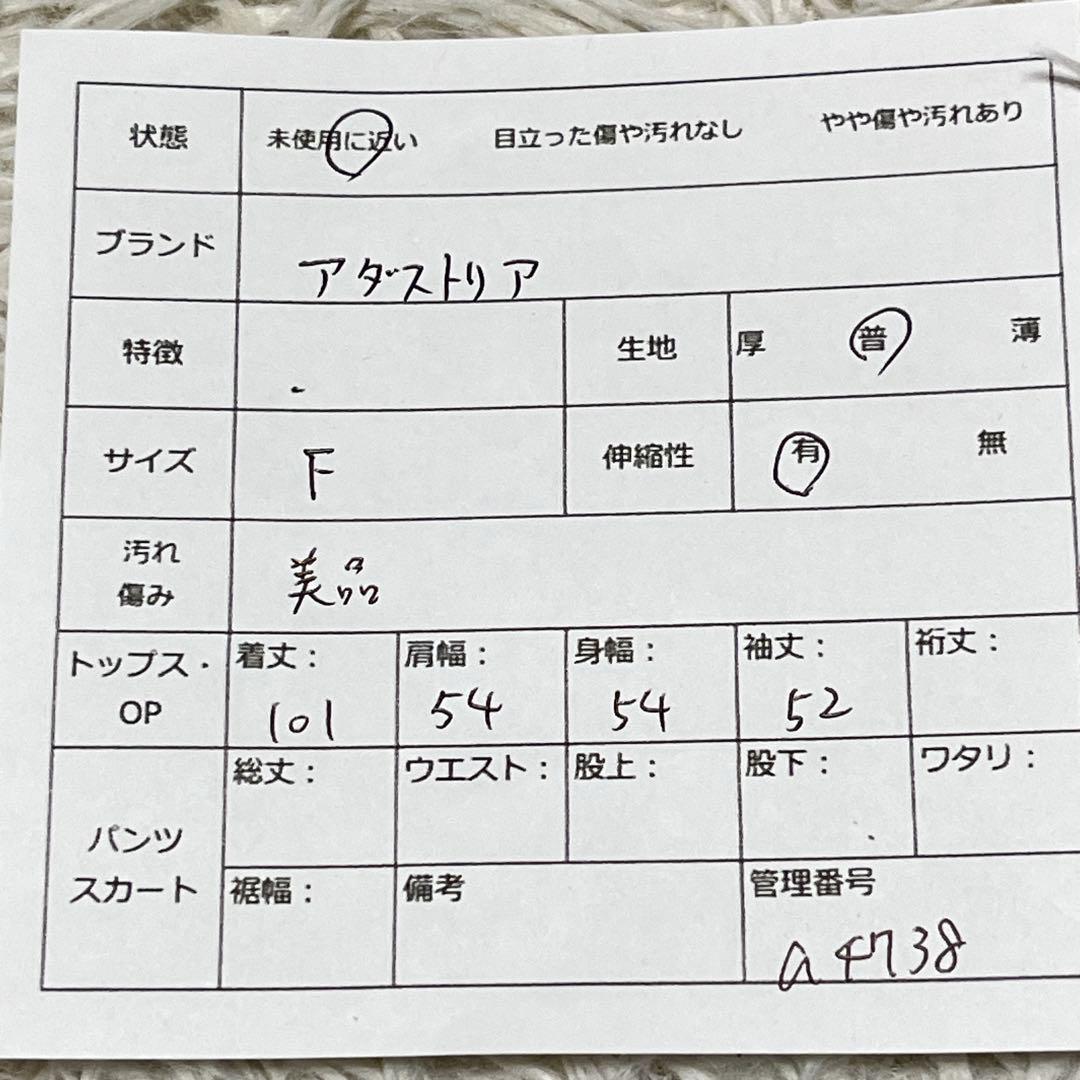 状態 未使用に近い 目立った傷や汚れなし やや傷や汚れあり
ブランド アダストリア
特徴 生地 厚 普 薄
サイズ F 伸縮性 有 無
汚れ
傷み 美品
トップス・
OP 着丈: 肩幅: 身幅: 袖丈: 裄丈:
101 54 54 52
パンツ
スカート 総丈: ウエスト: 股上: 股下: ワタリ:
裾幅: 備考 管理番号
a4738